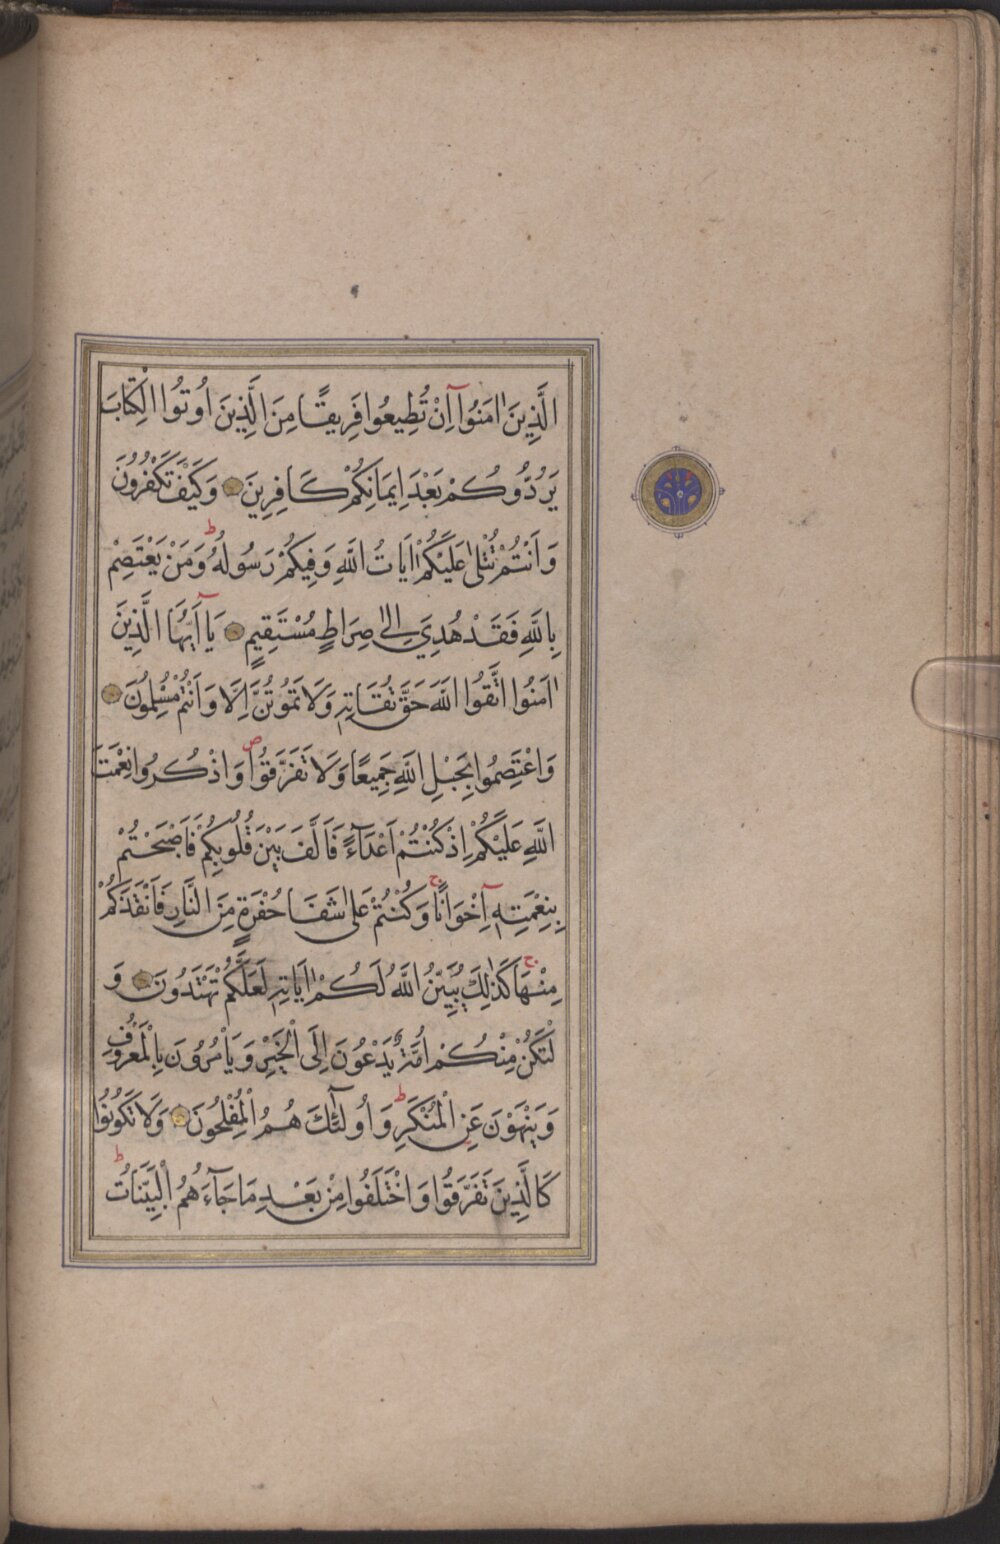 الَّذِينَ اٰمَنُوا اِنْ تُطِيعُوا فَرِيقًا مِنَ الَّذِينَ اُوتُوا الْكِتَابَ
يَرُدُّوكُمْ بَعْدَ اِيمَانِكُمْ كَافِرِينَ وَكَيْفَ تَكْفُرُونَ
وَاَنْتُمْ تُتْلٰى عَلَيْكُمْ اٰيَاتُ اللّٰهِ وَفِيكُمْ رَسُولُهُ ط وَمَنْ يَعْتَصِمْ
بِاللّٰهِ فَقَدْ هُدِيَ اِلٰى صِرَاطٍ مُسْتَقِيمٍ يَا اَيُّهَا الَّذِينَ
اٰمَنُوا اتَّقُوا اللّٰهَ حَقَّ تُقَاتِهِ وَلَا تَمُوتُنَّ اِلَّا وَاَنْتُمْ مُسْلِمُونَ
وَاعْتَصِمُوا بِحَبْلِ اللّٰهِ جَمِيعًا وَلَا تَفَرَّقُوا ص وَاذْكُرُوا نِعْمَتَ
اللّٰهِ عَلَيْكُمْ اِذْ كُنْتُمْ اَعْدَآءً فَاَلَّفَ بَيْنَ قُلُوبِكُمْ فَاَصْبَحْتُمْ
بِنِعْمَتِهِ اِخْوَانًا ج وَكُنْتُمْ عَلٰى شَفَا حُفْرَةٍ مِنَ النَّارِ فَاَنْقَذَكُمْ
مِنْهَا ج كَذٰلِكَ يُبَيِّنُ اللّٰهُ لَكُمْ اٰيَاتِهِ لَعَلَّكُمْ تَهْتَدُونَ وَ
لْتَكُنْ مِنْكُمْ اُمَّةٌ يَدْعُونَ اِلَى الْخَيْرِ وَيَاْمُرُونَ بِالْمَعْرُوفِ
وَيَنْهَوْنَ عَنِ الْمُنْكَرِ ط وَاُولٰٓئِكَ هُمُ الْمُفْلِحُونَ وَلَا تَكُونُوا
كَالَّذِينَ تَفَرَّقُوا وَاخْتَلَفُوا مِنْ بَعْدِ مَا جَآءَهُمُ الْبَيِّنَاتُ ط